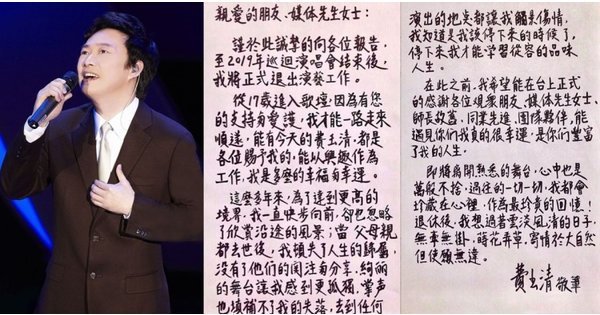 親愛的朋友、媒体先生女士：
謹於此誠摯的向各位報告，
至2019年巡迴演唱會結束後，
我將正式退出演藝工作。
從17歲進入歌壇，因為有您
的支持與愛護，我才能一路走來
順遂，能有今天的費玉清，都是
各位賜予我的，能以興趣作為
工作，我是多麼的幸福与幸運。
這麼多年來，為了達到更高的
境界，我一直快步向前，卻也忽略
了欣賞沿途的風景；當父母親
都去世後，我頓失了人生的歸屬，
沒有了他們的関注与分享，絢麗
的舞台讓我感到更孤獨，掌声
也填補不了我的失落，去到任何
演出的地点都讓我觸景傷情，
我知道是我該停下來的時候了，
停下來我才能學習從容的品味
人生。
在此之前，我希望能在台上正式
的感謝各位觀眾朋友、媒体先生女士、
師長故舊、同業先進、團隊夥伴，能
遇見你們我真的很幸運，是你們豐富
了我的人生，
即將離開熟悉的舞台，心中也是
萬般不捨，過往的一切一切，我都會
珍藏在心裡，作為最珍貴的回憶！
退休後，我想過著雲淡風清的日子，
無牽無掛，蒔花弄草，寄情於大自然
但使願無違。
費玉清 敬筆